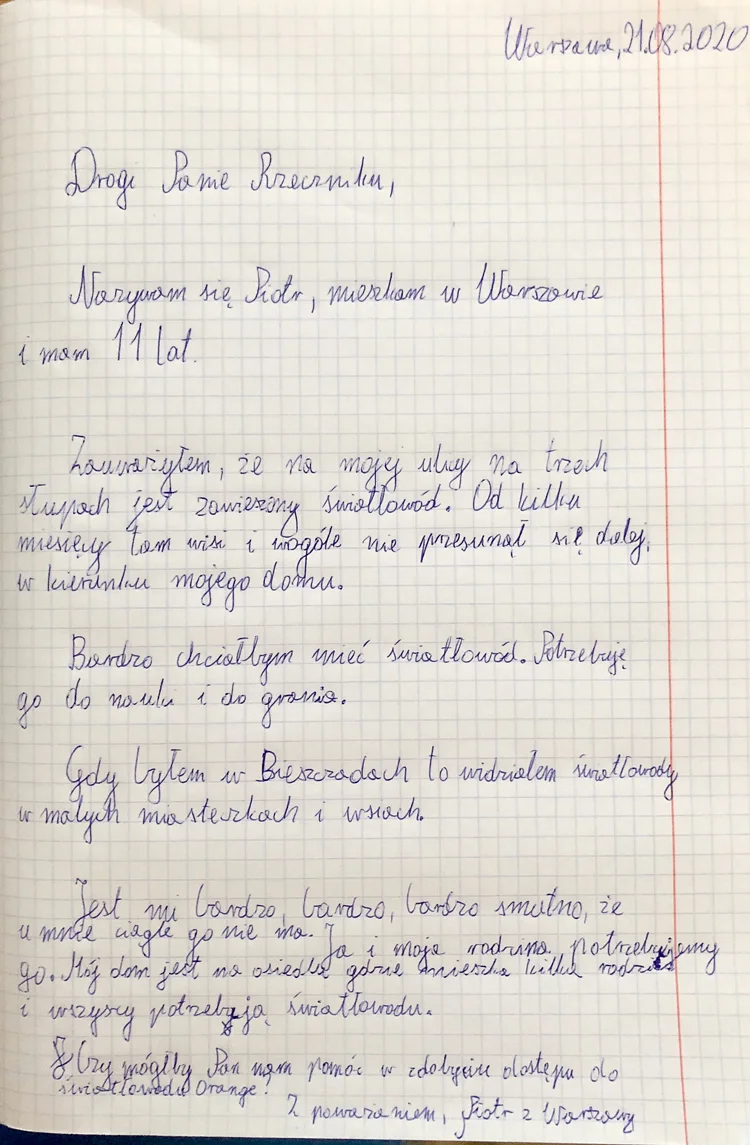 Warszawa, 21.08.2020
Drogi Panie Rzeczniku,
Nazywam się Piotr, mieszkam w Warszawie
i mam 11 lat.
Zauważyłem, że na mojej ulicy na trzech
słupach jest zawieszony światłowód. Od kilku
miesięcy tam wisi i wogóle nie przesunął się dalej,
w kierunku mojego domu.
Bardzo chciałbym mieć światłowód. Potrzebuję
go do nauki i do grania.
Gdy byłem w Bieszczadach to widziałem światłowody
w małych miasteczkach i wsiach.
Jest mi bardzo, bardzo, bardzo smutno, że
u mnie ciągle go nie ma. Ja i moja rodzina potrzebujemy
go. Mój dom jest na osiedlu gdzie mieszka kilka rodzin
i wszyscy potrzebują światłowodu.
Czy mógłby Pan nam pomóc w zdobyciu dostępu do
światłowodu Orange?
Z poważaniem, Piotr z Warszawy